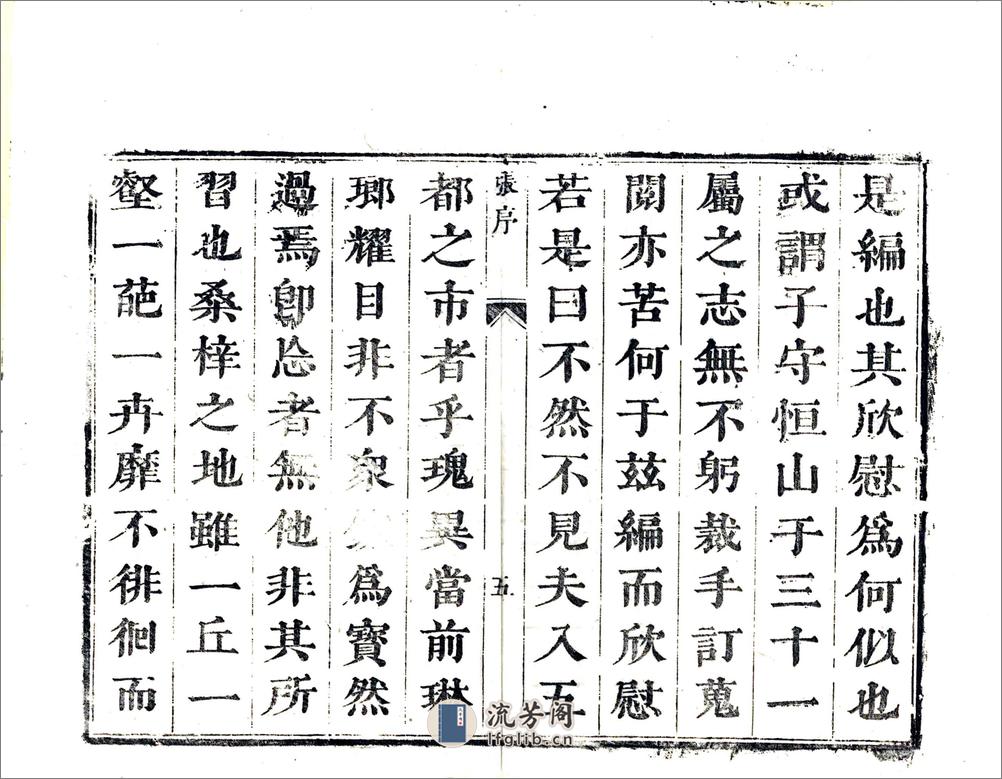 是編也其欣慰為何似也
或謂子守恒山于三十一
屬之志無不躬裁手訂蒐
閱亦苦何于茲編而欣慰
若是曰不然不見夫入五
張序
五
都之市者乎瑰異當前琳
瑯耀目非不衆為寶然
過焉卽忘者無他非其所
習也桑梓之地雖一丘一
壑一葩一卉靡不徘徊而
流芳阁
lfglib.cn